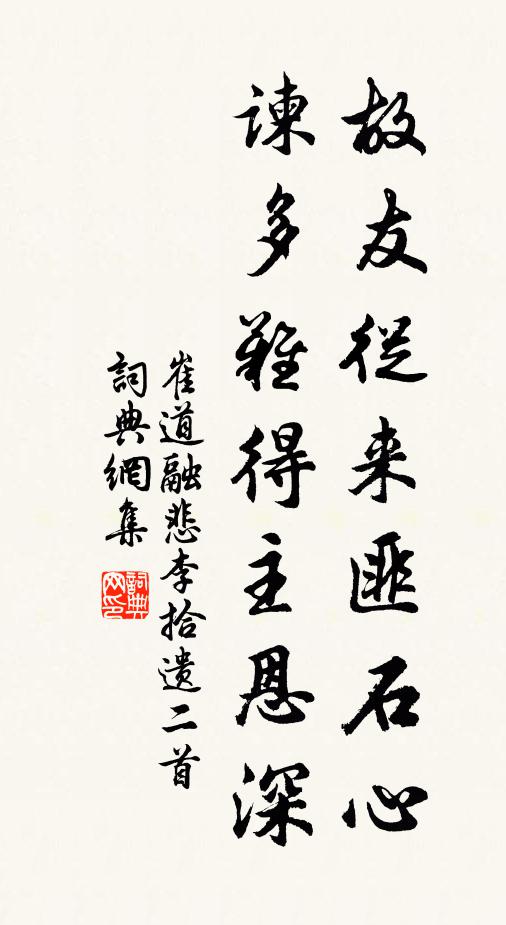 故友從来匪石心
諫多難得主恩深
崔道融悲李拾遗二首
詞典網集
詞典网印